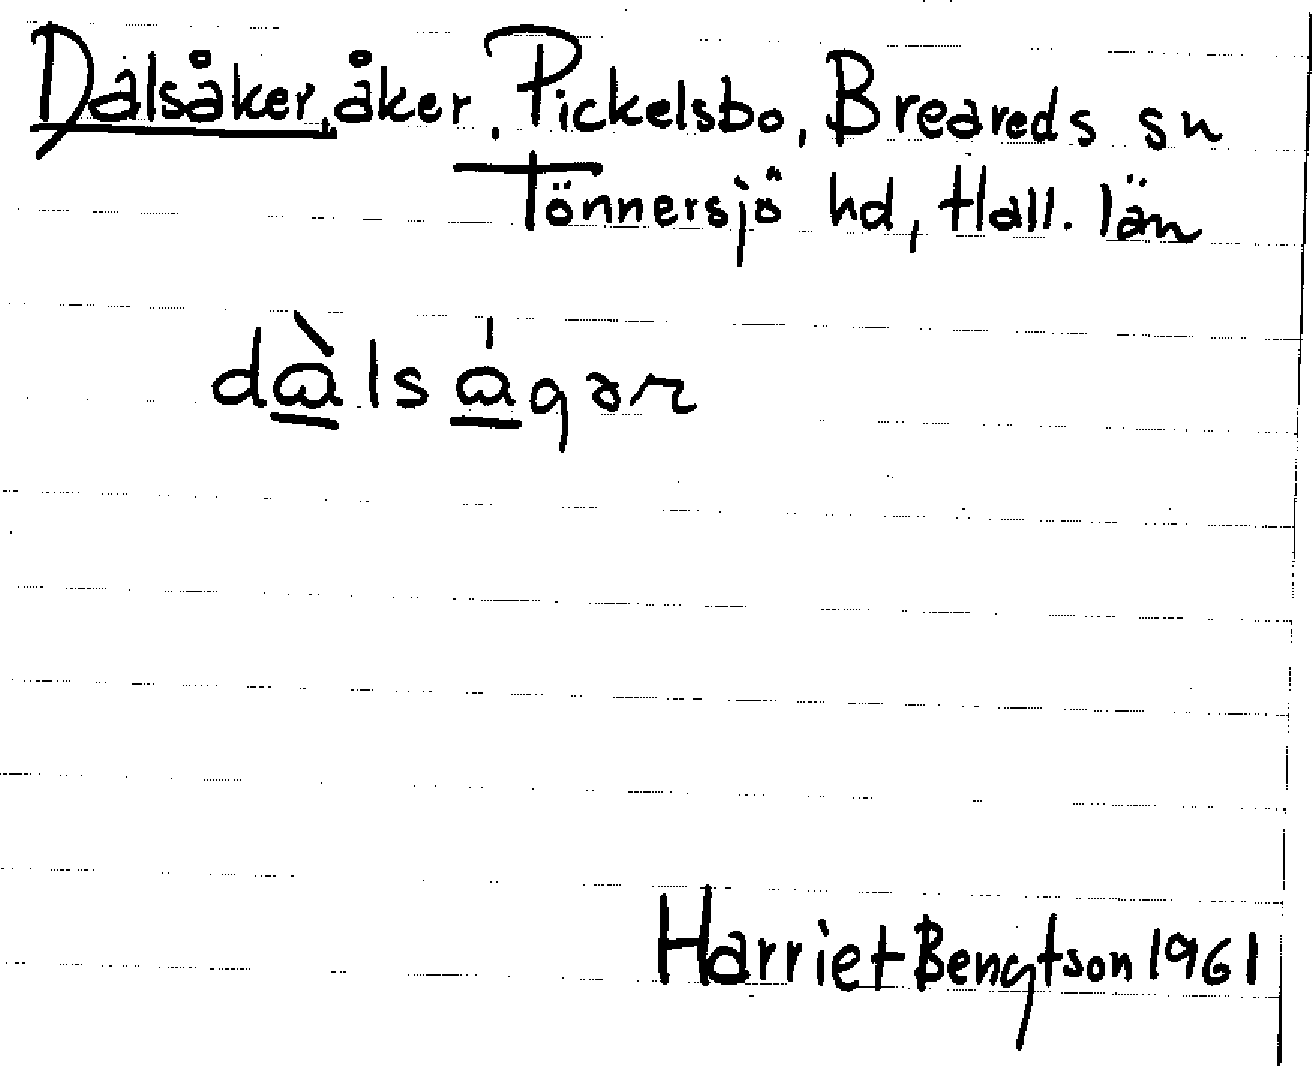 Dalsåker, åker, Pickelsbo, Breareds sn
Tönnersjö hd, Hall. län
dɑ̀lsɑ́gər
Harriet Bengtson 1961